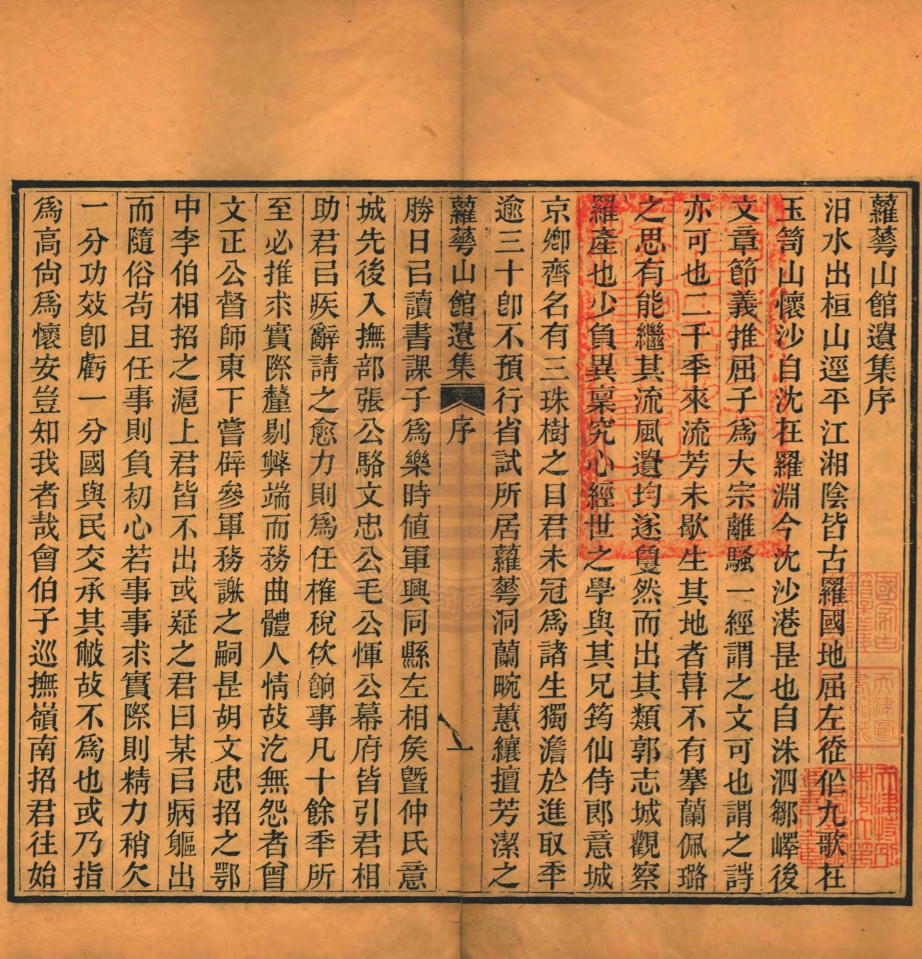 蘿蕚山館遺集序
汨水出桓山逕平江湘陰皆古羅國地屈左徒伀九歌在
玉笥山懷沙自沈在羅淵今沈沙港是也自洙泗鄒嶧後
文章節義推屈子爲大宗離騷一經謂之文可也謂之詩
亦可也二千季來流芳未歇生其地者算不有搴蘭佩璐
之思有能繼其流風遺均遂敻然而出其類郭志城觀察
羅產也少負異稟究心經世之學與其兄筠仙侍郎意城
京卿齊名有三珠樹之目君未冠爲諸生獨澹於進取季
逾三十卽不預行省試所居蘿蕚洞蘭畹蕙纕擅芳潔之
蘿蕚山館遺集 序 一
勝日㠯讀書課子爲樂時値軍興同縣左相矦曁仲氏意
城先後入撫部張公駱文忠公毛公惲公幕府皆引君相
助君㠯疾辭請之愈力則爲任榷稅佽餉事凡十餘季所
至必推求實際釐剔弊端而務曲體人情故汔無怨者曾
文正公督師東下嘗辟參軍務謝之嗣是胡文忠招之鄂
中李伯相招之滬上君皆不出或疑之君曰某㠯病軀出
而隨俗苟且任事則負初心若事事求實際則精力稍欠
一分功效卽虧一分國與民交承其敝故不爲也或乃指
爲高尙爲懷安豈知我者哉會伯子巡撫嶺南招君往始